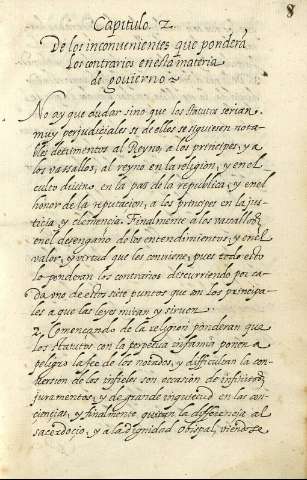 8
Capitulo. 2.
De los inconvenientes que ponderã
los contrarios en esta materia
de govierno
No ay que dudar sino que los statutos serian
muy perjudiciales si de ellos se siguiesen nota-
bles detrimentos al Reyno, a los principes, y a
los vassallos, al reyno en la religion, y en el
culto divino, en la paz de la republica, y en el
honor de la reputacion, a los principes en la jus-
ticia, y clemencia. Finalmente à los vassallos
en el desengaño de los entendimientos, y en el
valor, y virtud que les conviene, pues todo esto
lo ponderan los contrarios discurriendo por ca-
da uno de estos siete puntos que son los principa-
les a que las leyes miran y sirven.
2. Començando de la religion ponderan que
los statutos con la perpetua infamia ponen a
peligro la fee de los notados, y dificultan la con-
version de los infieles son ocasion de infinitos
juramentos, y de grande inquietud en las con-
ciencias, y finalmente quitan la differencia al
sacerdocio, y a la dignidad obispal, viendose